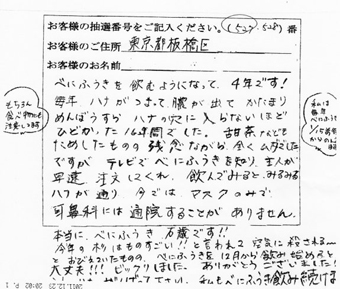 お客様の抽選番号をご記入ください。(527 528) 番
お客様のご住所 東京都板橋区
お客様のお名前
べにふうきを飲むようになって、4年です!
毎年 ハナがつまって膿が出て かたまり
めんぼうすら ハナの穴に入らないほど
ひどかった16年間でした。甜茶なども
ためしたものの残念ながら、全くムダでした
ですが テレビでべにふうきを知り、主人が
早速 注文してくれ、飲んでみると、みるみる
ハナが通り 今では マスクのみで
耳鼻科には通院することがありません。
もちろん
食べ物にも
注意してます
私は
毎日
べにふう
本当に、べにふうき 万歳です!!
今年の杉はものすごい!!と言われて 空気に殺される〜
とおびえていたものの、べにふうきを12月から飲み始めると
大丈夫!!! ビックリしました ありがとうございました!
私もべにふうき飲み続け
2011.12.25 20:02 P. 1